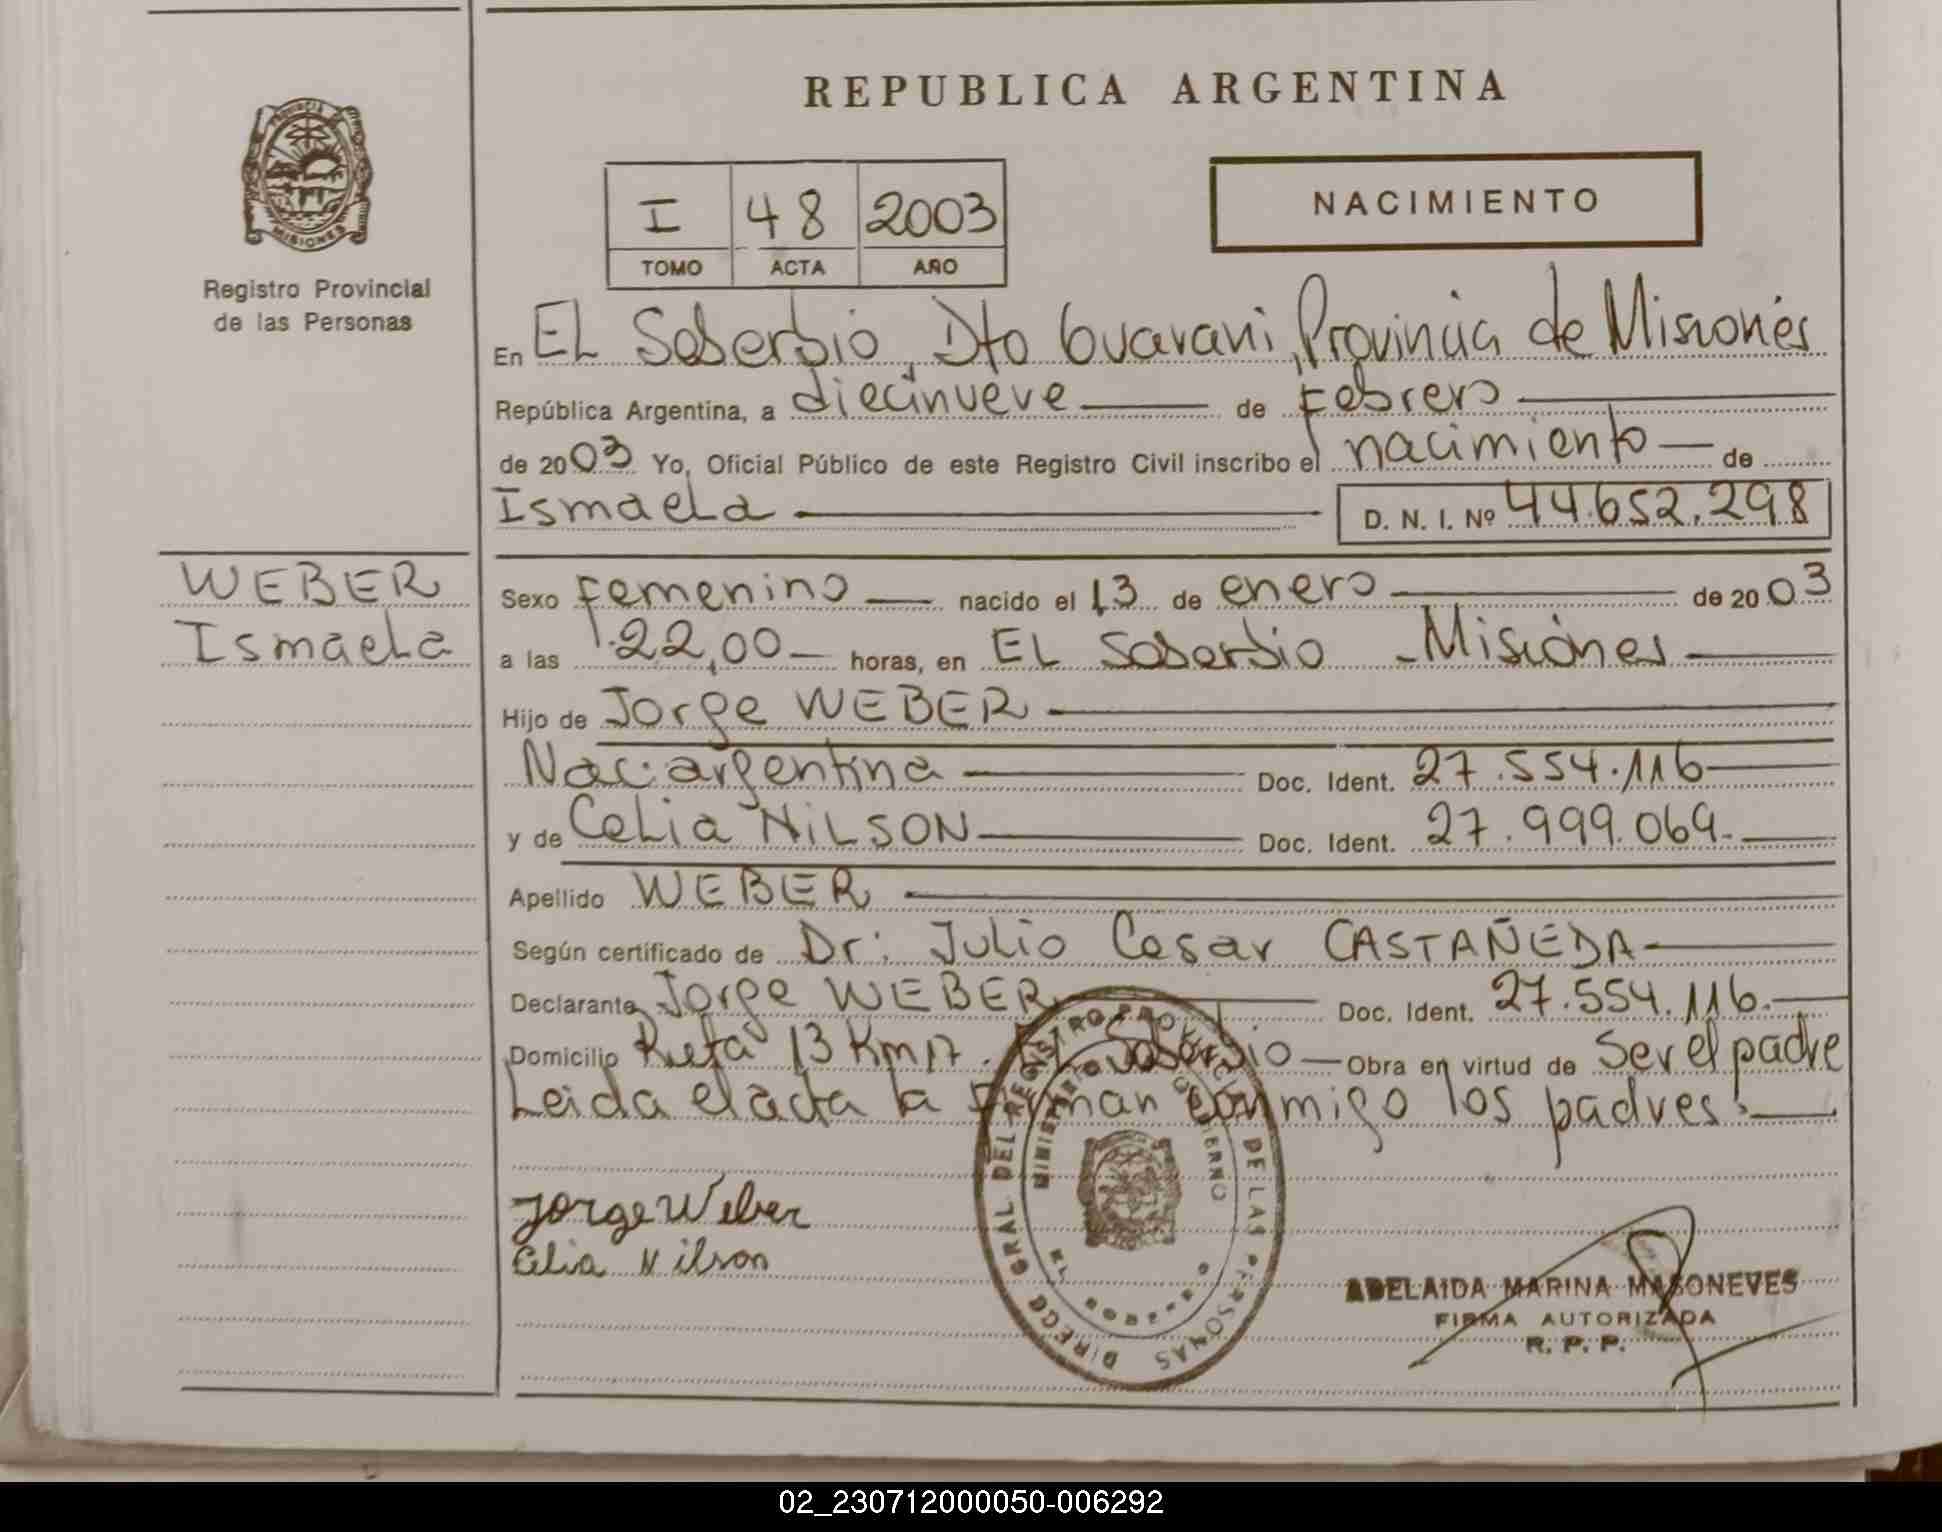 REPUBLICA ARGENTINA
PROVINCIA DE MISIONES
Registro Provincial
de las Personas
I 48 2003
TOMO ACTA AÑO
NACIMIENTO
En EL Soberbio, Dto Guarani, Provincia de Misiones
República Argentina, a diecinueve de Febrero
de 2003 Yo, Oficial Público de este Registro Civil inscribo el nacimiento de
Ismaela D. N. I. Nº 44.652.298
WEBER
Ismaela
Sexo Femenino nacido el 13 de enero de 2003
a las 22,00 horas, en EL Soberbio - Misiones
Hijo de Jorge WEBER
Nac: argentina Doc. Ident. 27.554.116
y de Celia NILSON Doc. Ident. 27.999.069.
Apellido WEBER
Según certificado de Dr: Julio Cesar CASTAÑEDA
Declarante Jorge WEBER Doc. Ident. 27.554.116.
Domicilio Ruta 13 Km 17. El Soberbio Obra en virtud de Ser el padre
Leida el acta la Firman conmigo los padres.
Jorge Weber
Celia Nilson
DIRECC GRAL DEL REGISTRO PROVINCIAL DE LAS PERSONAS
MINISTERIO DE GOBIERNO
EL SOBERBIO
ADELAIDA MARINA MASONEVES
FIRMA AUTORIZADA
R. P. P.
02_230712000050-006292